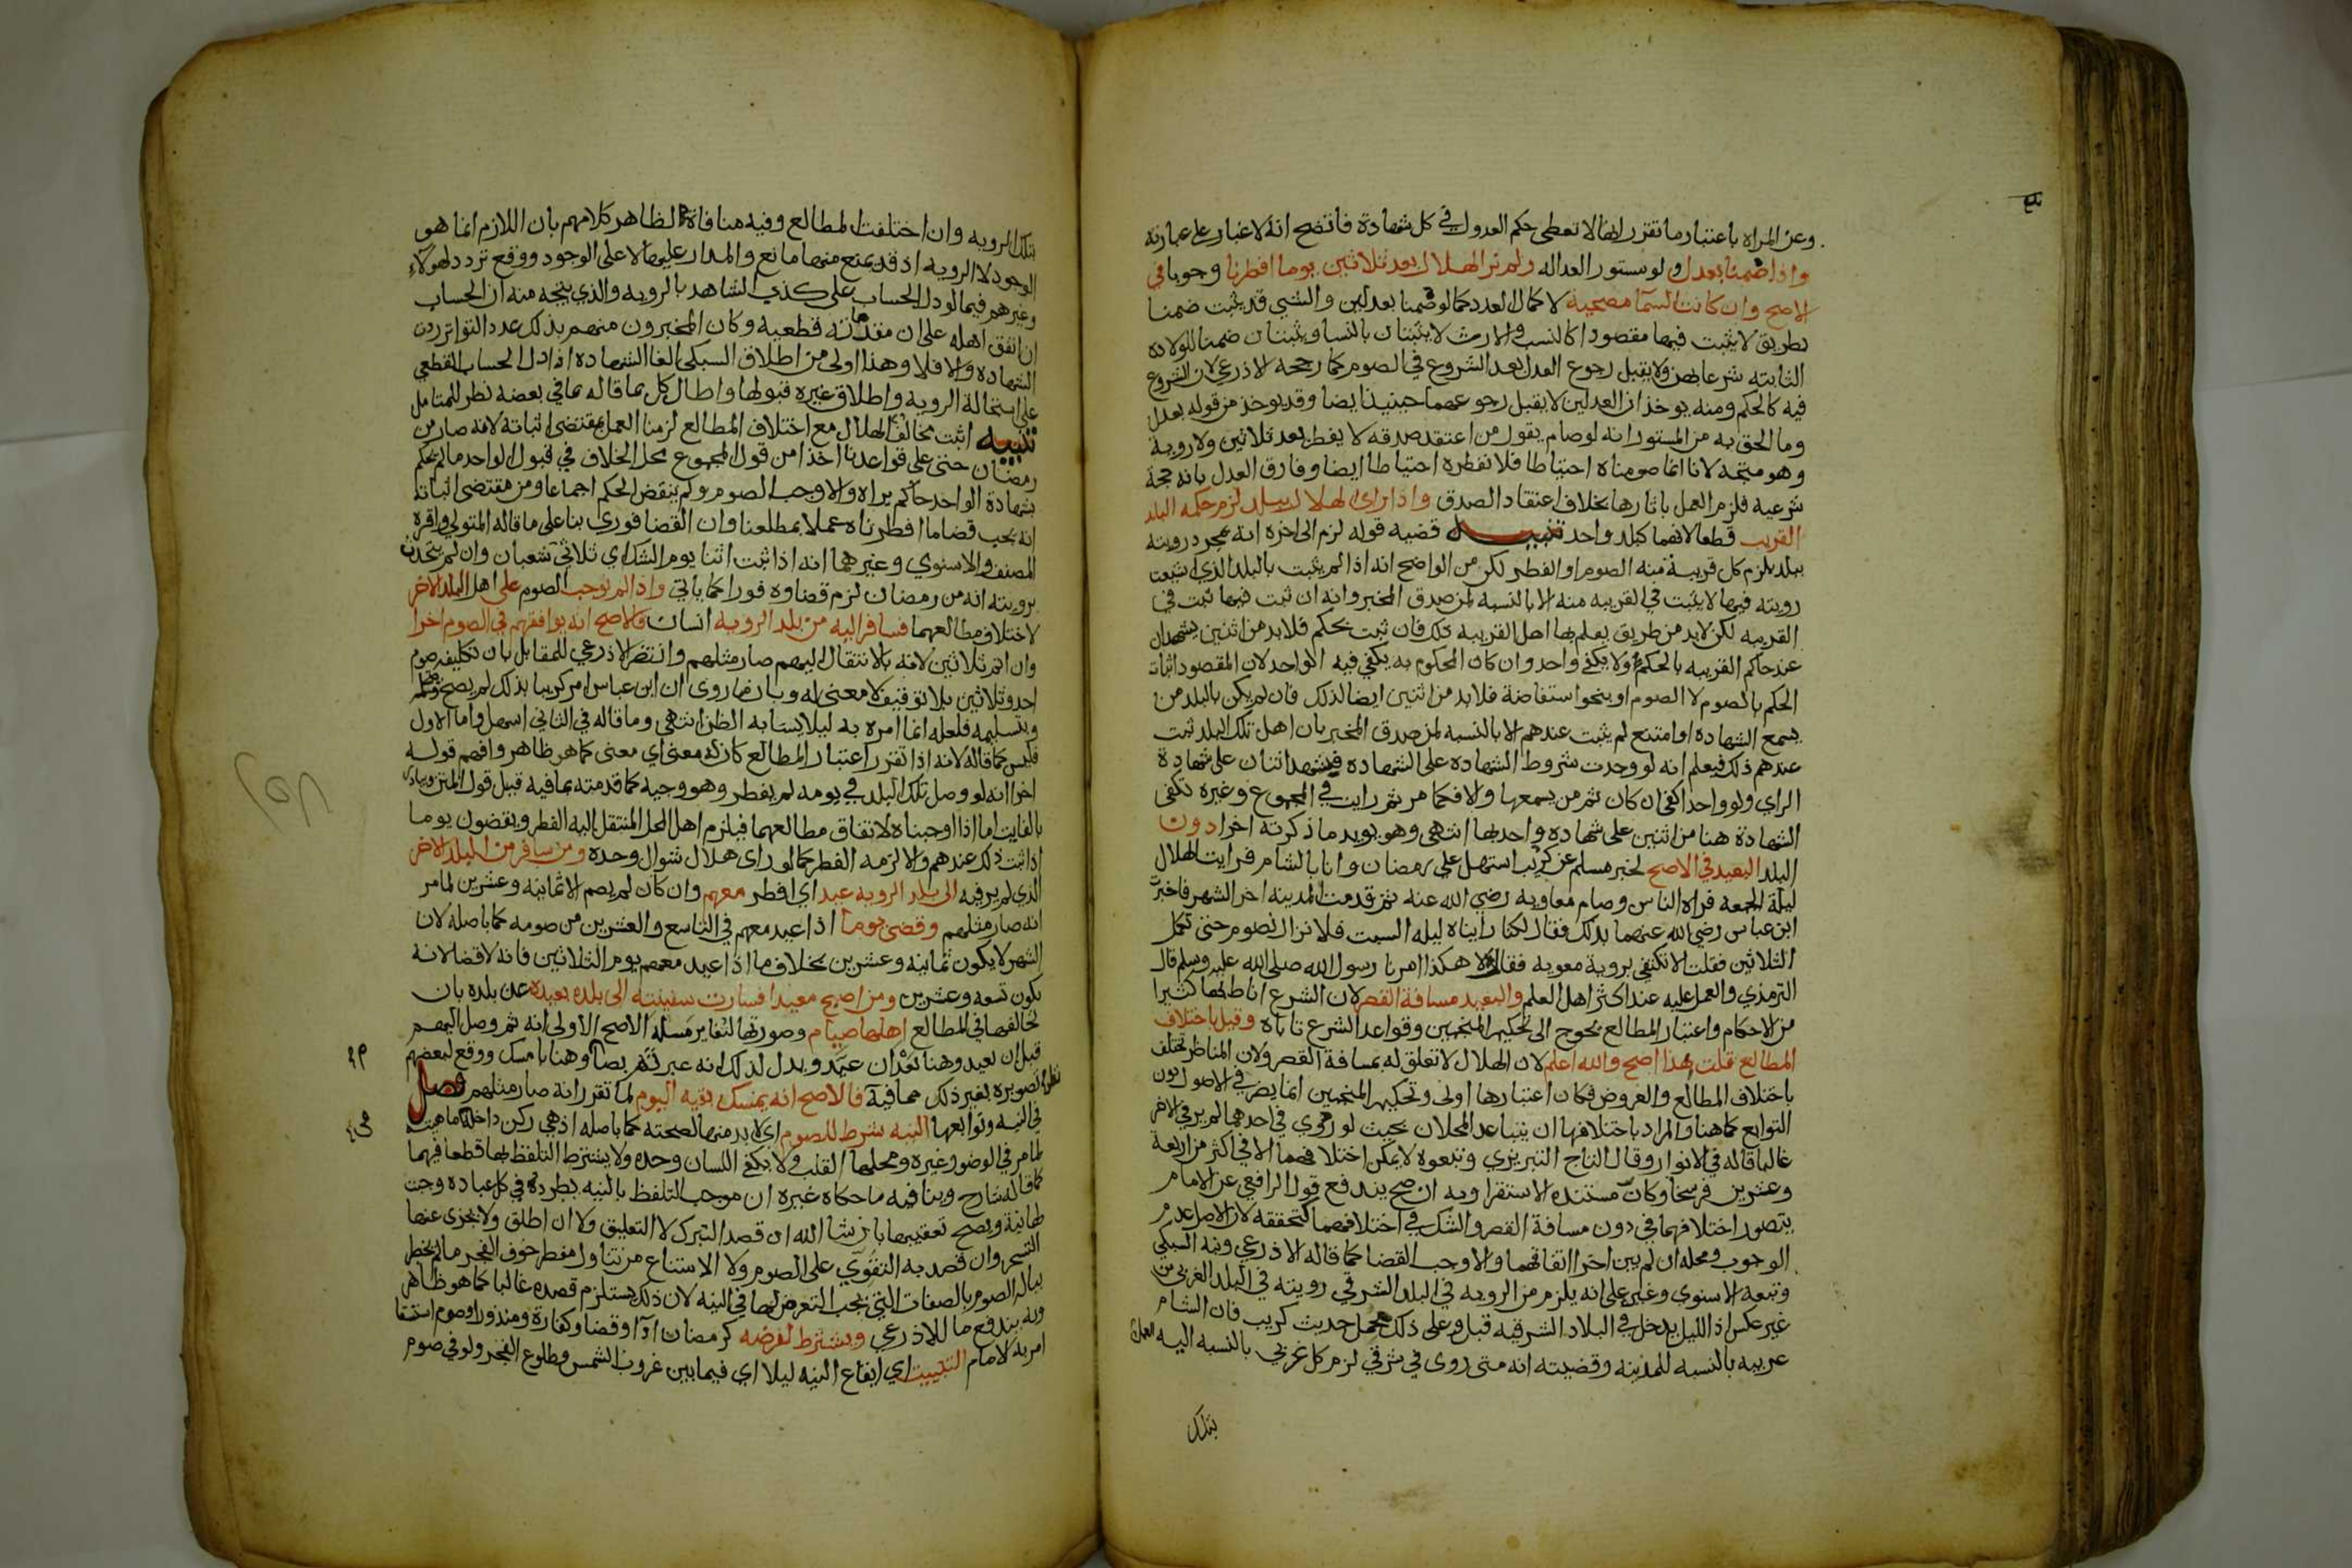 وعن المراه باعتبار ما تقرر انها لا تعطى حكم العدول في كل شهادة فاتضح انه لا غبار على عبارته
واذا صمنا بعدل ولو مستور العداله ولم نر الهلال بعد ثلاثين يوما افطرنا وجوبا في
الاصح وان كانت السما مصحية لا كمال العدد كما لو صمنا بعدلين والشي قد يثبت ضمنا
بطريق لا يثبت فيها مقصودا كالنسب والارث لا يثبتان بالنسا ويثبتان ضمنا للولاده
الثابته شرعا بهن ولا يقبل رجوع العدل بعد الشروع في الصوم كما رجحه الاذرعي لان الشروع
فيه كالحكم ومنه يوخذ ان العدلين لا يقبل رجوعهما حينيذ ايضا وقد يوخذ من قوله بعدل
وما الحق به من المستور انه لو صام بقول من اعتقد صدقه لا يفطر بعد ثلاثين ولا روية
وهو متجه لانا انما صومناه احتياطا فلا نفطره احتياطا ايضا وفارق العدل بانه حجة
شرعيه فلزم العمل باثارها بخلاف اعتقاد الصدق واذا راى الهلال ببلد لزم حكمه البلد
القريب قطعا لانهما كبلد واحد تنبيه قضيه قوله لزم الى اخره انه بمجرد رويته
ببلد يلزم كل قريبة منه الصوم او الفطر لكن من الواضح انه اذا لم يثبت بالبلد الذي اشيعت
رويته فيها لا يثبت في القريبه منه الا بالنسبه لمن صدق المخبر وانه ان ثبت فيها ثبت في
القريبه لكن لابد من طريق يعلم بها اهل القريبه ذلك فان ثبت بحكم فلا بد من اثنين يشهدان
عند حاكم القريبه بالحكم ولا يكفي واحد وان كان المحكوم به يكفي فيه الواحد لان المقصود اثبات
الحكم بالصوم لا الصوم او بنحو استفاضة فلا بد من اثنين ايضا لذلك فان لم يكن بالبلد من
يسمع الشهاده او امتنع لم يثبت عندهم الا بالنسبه لمن صدق المخبر بان اهل تلك البلد ثبت
عندهم ذلك فيعلم انه لو وجدت شروط الشهاده على الشهاده فيشهد اثنان على شهادة
الراي ولو واحدا كفى ان كان ثم من يسمعها والا فكما مر ثم رايت في المجموع وغيره تكفى
الشهادة هنا من اثنين على شهاده واحد بها انتهى وهو يويد ما ذكرته اخرا دون
البلد البعيد في الاصح لخبر مسلم عن كريب استهل علي رمضان وانا بالشام فرايت الهلال
ليلة الجمعه فراه الناس وصام معاويه رضي الله عنه ثم قدمت المدينه اخر الشهر فاخبرت
ابن عباس رضي الله عنهما بذلك فقال لكنا رايناه ليله السبت فلا نزال نصوم حتى نكمل
الثلاثين فقلت الا تكتفي بروية معويه فقال لا هكذا امرنا رسول الله صلى الله عليه وسلم قال
الترمذي والعمل عليه عند اكثر اهل العلم والبعيد مسافة القصر لان الشرع اناط بها كثيرا
من الاحكام واعتبار المطالع يحوج الى تحكيم المنجمين وقواعد الشرع تاباه وقيل باختلاف
المطالع قلت هذا اصح والله اعلم لان الهلال لا تعلق له بمسافة القصر ولان المناظر تختلف
باختلاف المطالع والعروض فكان اعتبارها اولى وتحكيم المنجمين انما يضر في الاصول دون
التوابع كما هنا والمراد باختلافها ان يتباعد المحلان بحيث لو روي في احدهما لم ير في الاخر
غالبا قاله في الانوار وقال التاج التبريزي وتبعوه لا يمكن اختلافهما الا في اكثر من اربعة
وعشرين فرسخا وكان مستنده الاستقرا وبه ان صح يندفع قول الرافعي عن الامام
يتصور اختلافهما في دون مسافة القصر والشك في اختلافهما كتحققه لان الاصل عدم
الوجوب ومحله ان لم يبن اخرا اتفاقهما والا وجب القضا كما قاله الاذرعي ونبه السبكي
وتبعه الاسنوي وغيره على انه يلزم من الرويه في البلد الشرقي رويته في البلد الغربي من
غير عكس اذ الليل يدخل في البلاد الشرقيه قبل وعلى ذلك حمل حديث كريب فان الشام
غربيه بالنسبه للمدينه وقضيته انه متى روى في شرقي لزم كل غربي بالنسبه اليه العمل
بتلك
بتلك الرويه وان اختلفت المطالع وفيه منافاة لظاهر كلامهم بان اللازم انما هو
الوجود لا الرويه اذ قد يمنع منها مانع والمدار عليها لا على الوجود ووقع تردد لهولاء
وغيرهم فيما لو دل الحساب على كذب الشاهد بالرويه والذي يتجه منه ان الحساب
ان اتفق اهله على ان مقدماته قطعيه وكان المخبرون منهم بذلك عدد التواتر ردت
الشهاده والا فلا وهذا اولى من اطلاق السبكي الغا الشهاده اذا دل الحساب القطعي
على استحالة الرويه واطلاق غيره قبولها واطال كل بما قاله بما في بعضه نظر للمتامل
تنبيه اثبت مخالف الهلال مع اختلاف المطالع لزمنا العمل بمقتضى اثباته لانه صار من
رمضان حتى على قواعدنا اخذا من قول المجموع محل الخلاف في قبول الواحد ما لم يحكم
بشهادة الواحد حاكم يراه والا وجب الصوم ولم ينقض الحكم اجماعا ومن مقتضى اثباته
انه يجب قضا ما افطرناه عملا بمطلعنا وان القضا فوري بنا على ما قاله المتولي واقره
المصنف والاسنوي وغيرهما انه اذا ثبت اثنا يوم الشك اي ثلاثي شعبان وان لم يتحدث
برويته انه من رمضان لزم قضاوه فورا كما ياتي واذا لم نوجب الصوم على اهل البلد الاخر
لاختلاف مطالعهما فسافر اليه من بلد الرويه انسان فالاصح انه يوافقهم في الصوم اخرا
وان اتم ثلاثين لانه بالانتقال اليهم صار مثلهم وانتصر الاذرعي للمقابل بان تكليفه صوم
احد وثلاثين بلا توقيف لا معنى له وبان ما روى ان ابن عباس امر كريبا بذلك لم يصح
وبتسليمه فلعله انما امره به ليلا يساء به الظن انتهى وما قاله في الثاني اسهل واما الاول
فليس كما قاله لانه اذا تقرر اعتبار المطالع كان له معنى اي معنى كما هو ظاهر وافهم قوله
اخرا انه لو وصل تلك البلد في يومه لم يفطر وهو وجيه كما قدمته بما فيه قبيل قول المتن ويبادر
بالفايت اما اذا اوجبناه لاتفاق مطالعهما فيلزم اهل المحل المنتقل اليه الفطر ويقضون يوما
اذا ثبت ذلك عندهم والا لزمه الفطر كما لو راى هلال شوال وحده ومن سافر من البلد الاخر
الذي لم ير فيه الى بلد الرويه عيد اي افطر معهم وان كان لم يصم الا ثمانيه وعشرين لما مر
انه صار مثلهم وقضى يوما اذا عيد معهم في التاسع والعشرين من صومه كما باصله لان
الشهر لا يكون ثمانيه وعشرين بخلاف ما اذا عيد معهم يوم الثلاثين فانه لا قضا لانه
يكون تسعه وعشرين ومن اصبح معيدا فسارت سفينته الى بلده بعيده عن بلده بان
تخالفها في المطالع اهلها صيام وصورتها لتغاير مسله الاصح الاولى انه ثم وصل اليهم
قبل ان يعيد وهنا بعد ان عيد ويدل لذلك انه عبر ثم بصام وهنا بامسك ووقع لبعضهم
تصويره بغير ذلك مما فيه نظر فالاصح انه يمسك بقيه اليوم لما تقرر انه صار مثلهم فصل
في النيه وتوابعها النيه شرط للصوم اي لا بد منها لصحته كما باصله اذ هي ركن داخله ماهيته
لما مر في الوضو وغيره ومحلها القلب ولا يكفي اللسان وحده ولا يشترط التلفظ بها قطعا فيهما
كما قاله شارح وينافيه ما حكاه غيره ان موجب التلفظ بالنيه يطرده في كل عباده وجبت
لها نية ويصح تعقيبها بان شا الله ان قصد التبرك لا التعليق ولا ان اطلق ولا يجزى عنها
التسحر وان قصد به التقوي على الصوم ولا الامتناع من تناول مفطر خوف الفجر ما لم يخطر
بباله الصوم بالصفات التي يجب التعرض لها في النيه لان ذلك يستلزم قصده غالبا كما هو ظاهر
وبه يندفع ما للاذرعي ويشترط لفرضه كرمضان ادا او قضا وكفارة ومنذور او صوم استسقا
امر به الامام التبييت اي ايقاع النيه ليلا اي فيما بين غروب الشمس وطلوع الفجر ولو في صوم